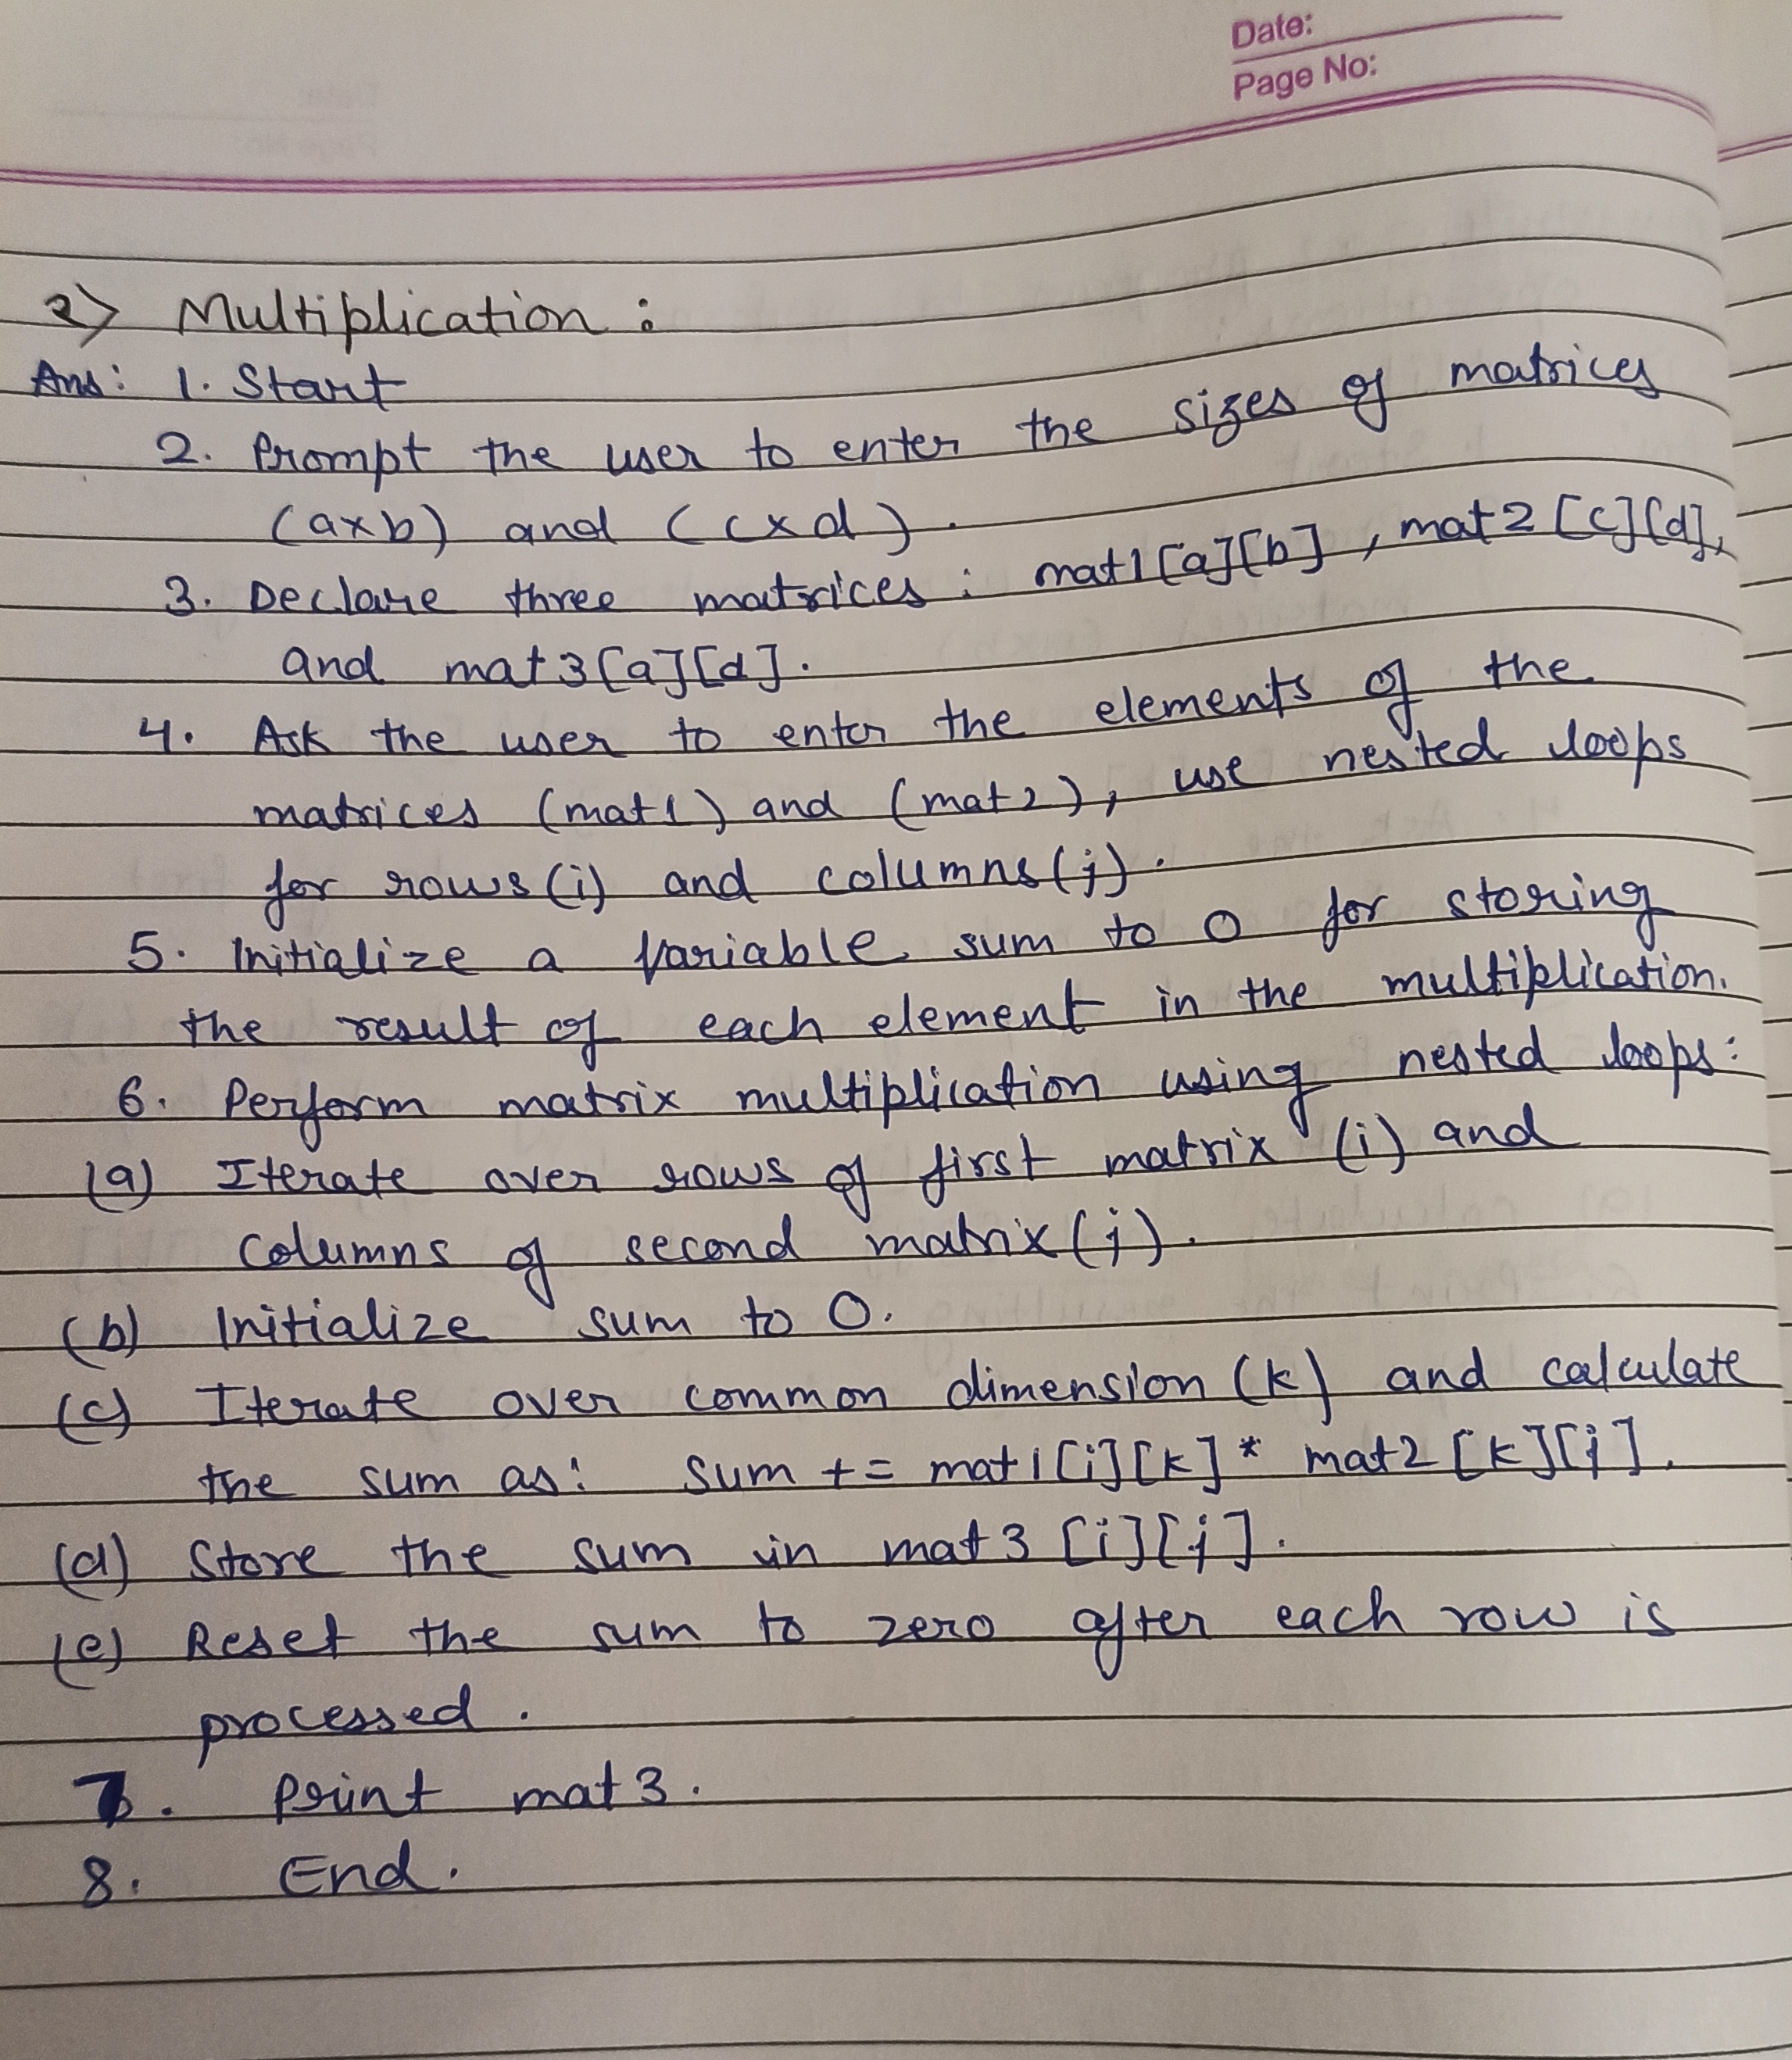 Date:
Page No:
2) Multiplication :
Ans: 1. Start
2. Prompt the user to enter the sizes of matrices
(axb) and (cxd).
3. Declare three matrices : mat1[a][b], mat2[c][d],
and mat3[a][d].
4. Ask the user to enter the elements of the
matrices (mat1) and (mat2), use nested loops
for rows(i) and columns(j).
5. Initialize a variable sum to 0 for storing
the result of each element in the multiplication.
6. Perform matrix multiplication using nested loops:
(a) Iterate over rows of first matrix (i) and
columns of second matrix(j).
(b) Initialize sum to 0.
(c) Iterate over common dimension (k) and calculate
the sum as: Sum += mat1[i][k] * mat2[k][j].
(d) Store the sum in mat3[i][j].
(e) Reset the sum to zero after each row is
processed.
7. Print mat3.
8. End.